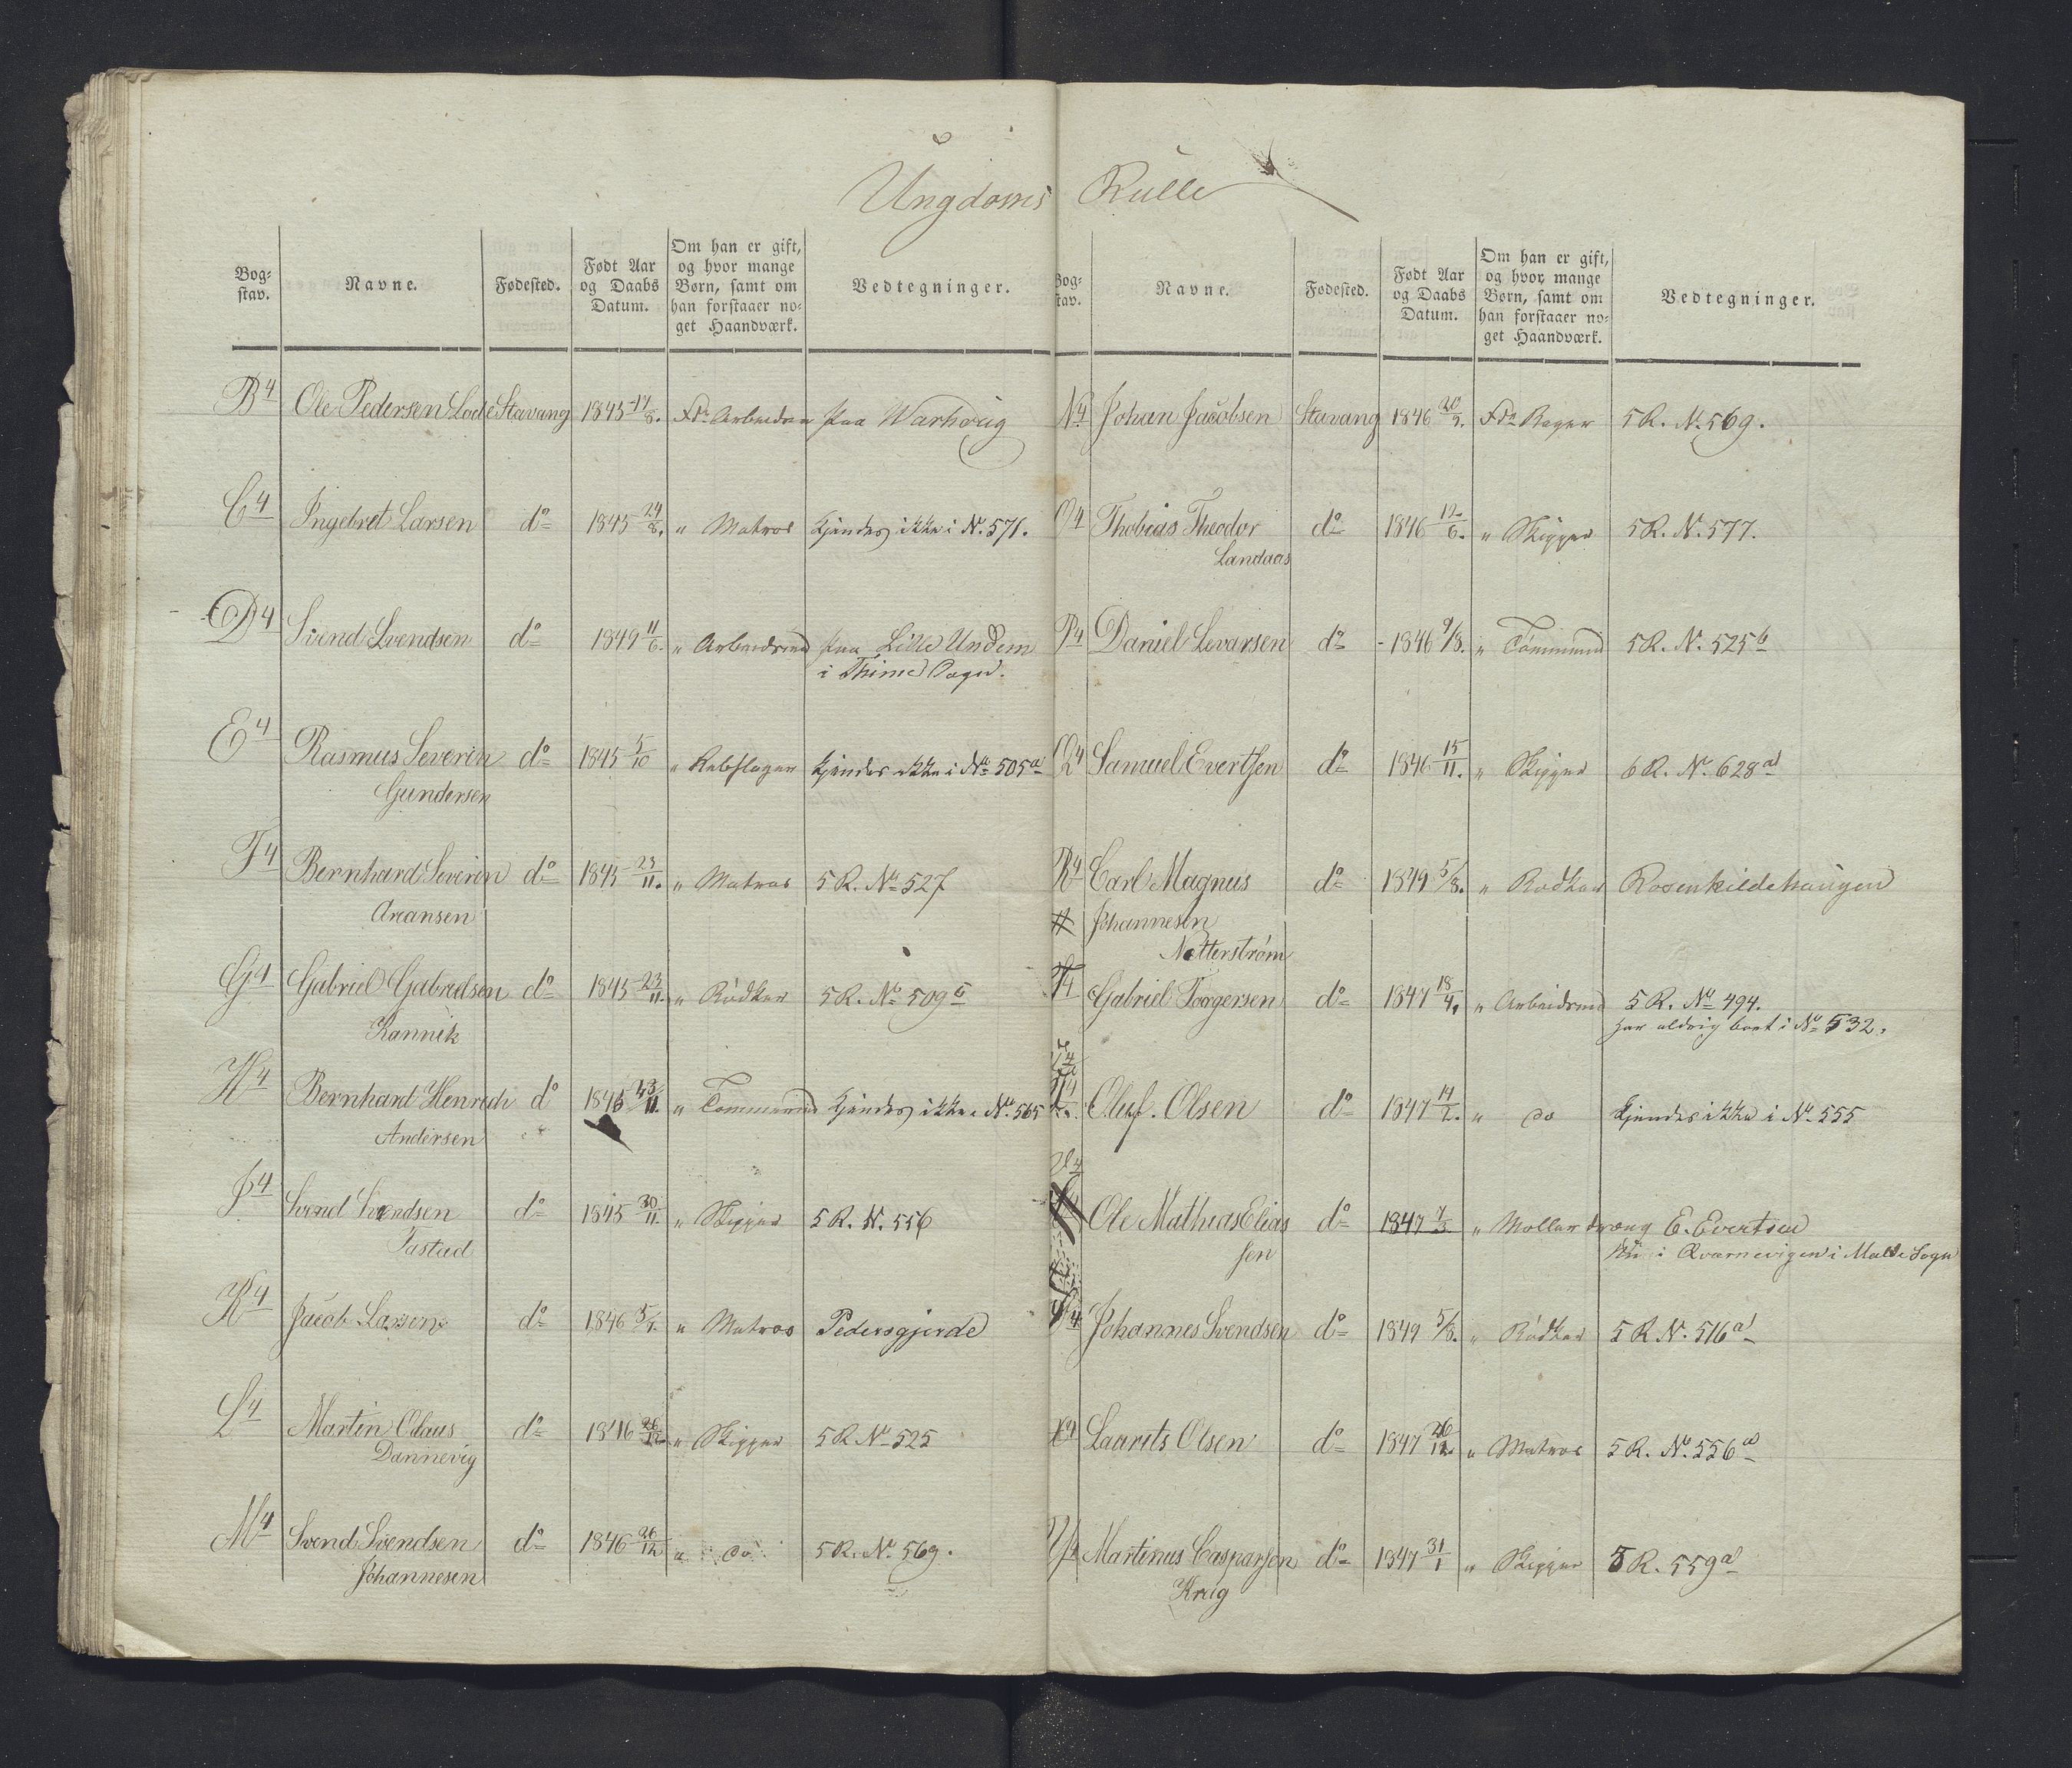 Ungdoms Rulle
Bog- stav. Navne. Fødested. Født Aar og Daabs Datum. Om han er gift, og hvor mange Børn, samt om han forstaaer no- get Haandværk. Vedtegninger.
B4 Ole Pedersen Lode Stavang 1845 17/8. Fdr. Arbeider paa Warhoug
C4 Ingebret Larsen do 1845 24/8. " Matros kjendes ikke i No. 571.
D4 Svend Svendsen do 1849 11/6. " Arbeidsmd paa Lille Undem
i Thime Sogn.
E4 Rasmus Severin do 1845 5/10 " Rebslager kjendes ikke i No 505a
Gundersen
F4 Bernhard Severin do 1845 23/11. " Matros 5 R. No 527
Areansen
G4 Gabriel Gabrielsen do 1845 23/11. " Rødker 5 R. No 509b
Kannik
H4 Bernhard Henrich do 1845 23/11. " Tømmermd kjendes ikke i No. 565
Andersen
I4 Svend Svendsen do 1845 30/11. " Skipper 5 R. N. 556
Tastad
K4 Jacob Larsen do 1846 5/1. " Matros Pedersgjerde
L4 Martin Olaus do 1846 26/12. " Skipper 5 R. No 525
Dannevig
M4 Svend Svendsen do 1846 26/12 " do 5 R. No. 569.
Johannesen
Bog- stav. Navne. Fødested. Født Aar og Daabs Datum. Om han er gift, og hvor mange Børn, samt om han forstaaer no- get Haandværk. Vedtegninger.
N4 Johan Jacobsen Stavang 1846 20/9. Fdr Bager 5 R. No. 569.
O4 Thobias Theodor do 1846 12/6. " Skipper 5 R. No. 577.
Landaas
P4 Daniel Sevarsen do 1846 9/8. " Tømmermd 5 R. No. 525b
Q4 Samuel Evertsen do 1846 15/11. " Skipper 6 R. No. 628a
R4 Carl Magnus do 1849 5/8. " Rødker Rosenkildehaugen
Johannesen
Netterstrøm
Gabriel Torgersen do 1847 18/4. " Arbeidsmd 5 R. No 494.
har aldrig boet i No 532.
Oluf. Olsen do 1847 14/2. " do kjendes ikke i No. 555
Ole Mathias Elias do 1847 7/3 " Møllerdreng E. Evertsen
sen nu i Qvarnevigen i Malde Sogn
Johannes Svendsen do 1849 5/8. " Rødker 5 R. N. 516a
X4 Laurits Olsen do 1847 26/12. " Matros 5 R. No. 556a
Y4 Martinus Caspersen do 1847 31/1 " Skipper 5 R. 559a
Krug